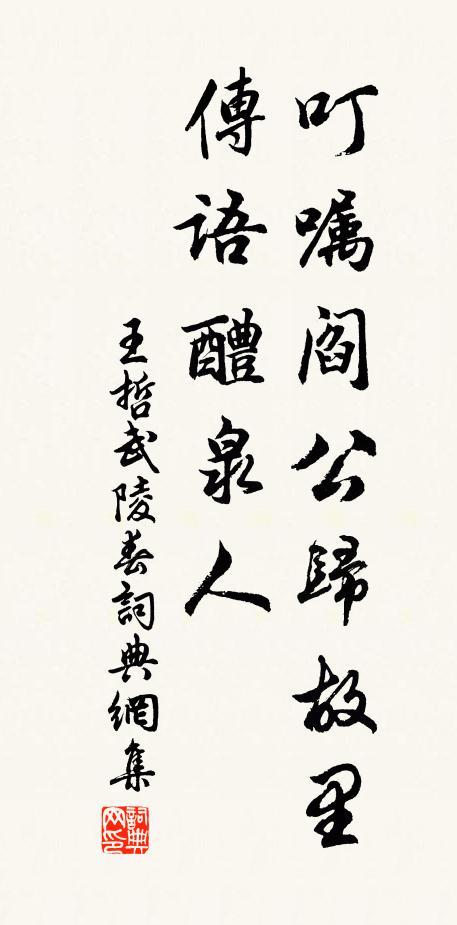 叮嘱閻公歸故里
傳語醴泉人
王哲武陵春詞典網集
詞典网印